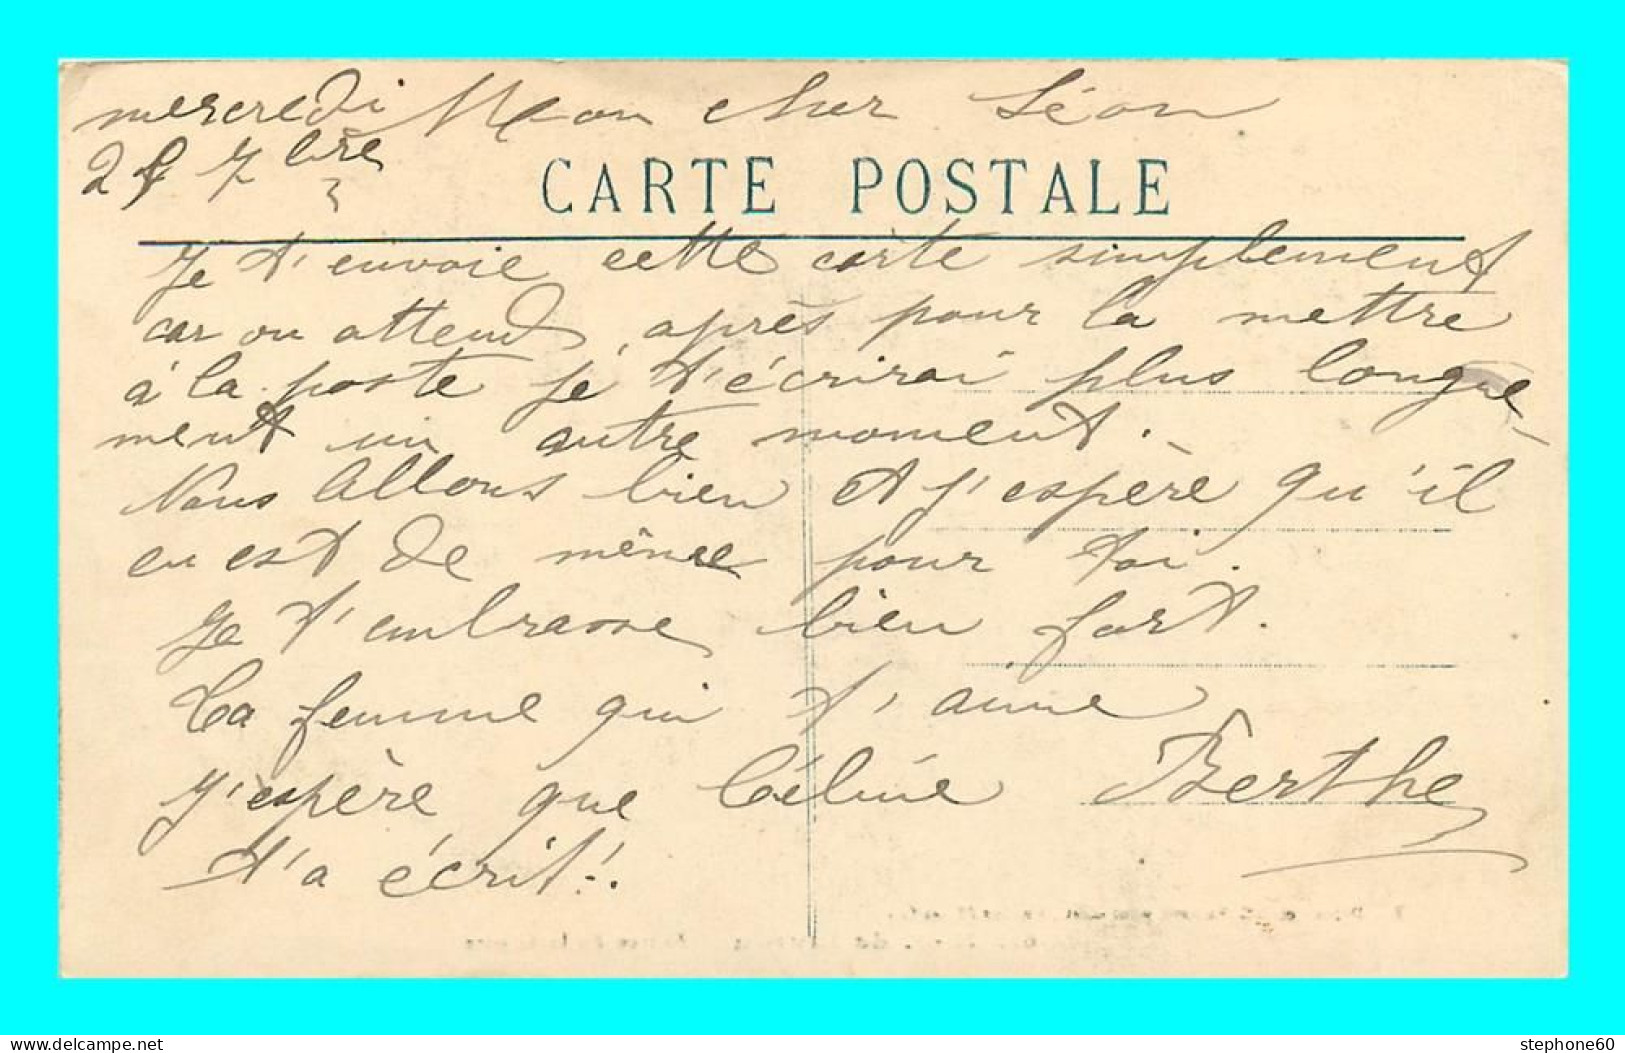 mercredi Mon cher Léon
7bre
CARTE POSTALE
Je t'envoie cette carte simplement
car on attend, après pour la mettre
à la poste je t'écrirai plus longue-
ment un autre moment.
Nous allons bien et j'espère qu'il
en est de même pour toi.
Je t'embrasse bien fort.
Ta femme qui t'aime
Berthe
J'espère que Céline
t'a écrit!.
stephone60